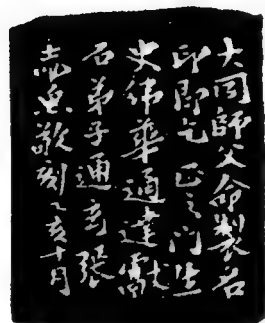 大同師父命製名
印即乞正之門生
史緯華通達獻
石弟子通玄張
志忠敬刻乙亥十月